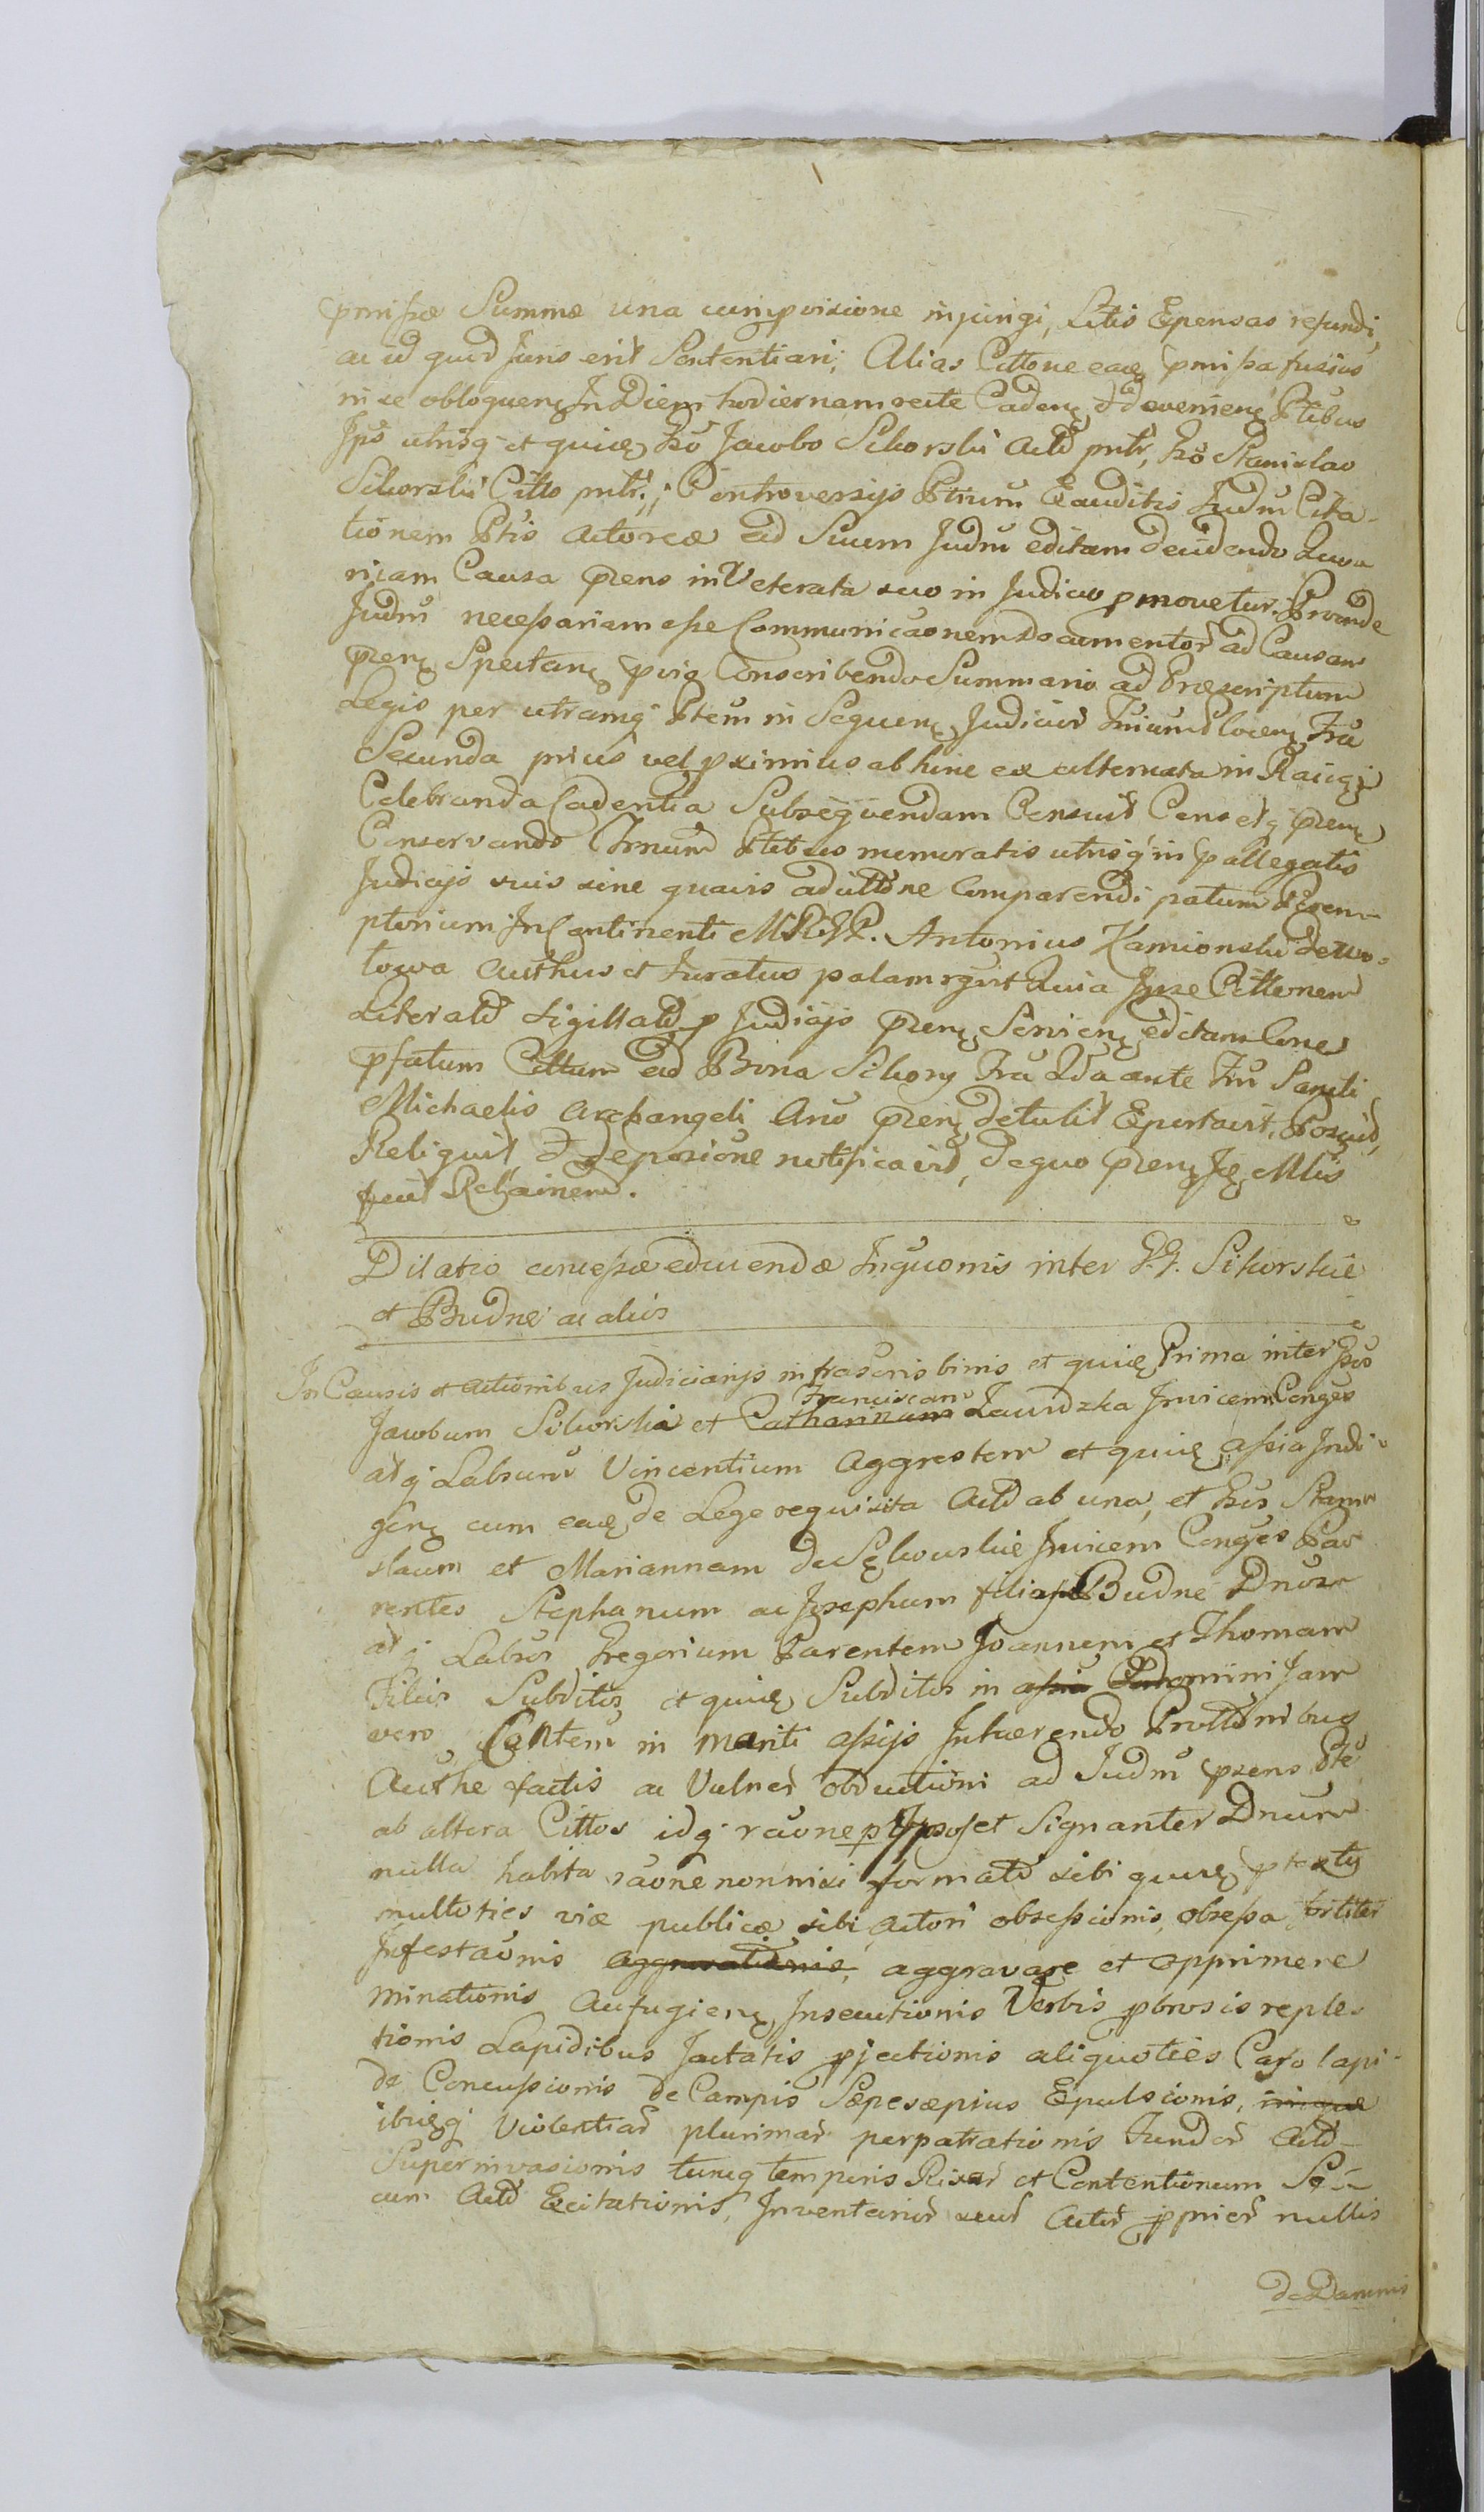 pmissæ Summæ una cum pvisione injungi, Litis Expensas refundi,
ac id quid Juris erit Sententiari; Alias Cittone eacq pmissa fusius
in se obloquenq In Diem hodiernam recte Cadenq & devenienq Ptibus
Ipis utrisq et quicq Gso Jacobo Sikorski Actd pntr, Gso Stanislao
Sikorski Citto pntr; Controversijs Ptium Exauditis Judm Cita-
tionem Ptis Actoreæ ad Suum Judm editam decidendo Quo-
niam Causa præns inveterata suo in Judicio pmovetur. Proinde
Judm necessariam esse Communicaonem documentor ad Causam
prænq Spectanq pvia Conscribendo Summario ad Præscriptum
Legis per utramq Ptem in Sequenq Judicior Triumd locenq Fra
Secunda prius vel pximius abhinc ex alternata in Raigq
Celebranda Cadentia Subseqvendam Censuit Censetq prænq
Conservando Trnum Ptibus memoratis utrisq in pallegatis
Judicijs suis sine quavis adcittone Comparendi patum & peren-
ptorium In Continenti MRJP. Antonius Kamionski de Wo-
towa Authus et Juratus palam rgvit Quia Ipse Cittonem
Literald Sigillatd p Judicijs prænq Servienq editam Cone
pfatum Cittum ad Bona Sikory Fra 2da ante Fm Sancti
Michaelis Archangeli Ano prænq detulit Exportavit, Posuit,
Reliquit, & deposicione notificavit, de quo prænq Jcq Mlis
fecit Rellaoinem.
Dilatio concessæ educendæ Inquonis inter GG. Sikorskie
et Budne ac alios
In Causis et actionibus Judiciarijs infrascris binis et quicq Prima inter Gsos
Franciscam
Jacobum Sikorski et Catharinam Zawidzka Invicem Conges
atq Labsum Vincentium Aggrestem et quicq assia Indi-
genq cum eacq de Lege requisita Actd ab una, et Gsos Stani-
slaum et Mariannam de Sękowskie Invicem Conges Pa-
rentes Stephanum ac Josephum filios Budne Dnos
atq Labsos Gregorium Parentem Joannem et Thomam
Filios Subditos et quicq Subditos in assia Domini Jam
vero Contem in Mariti assijs Inhærendo Prottonibus
Authe factis ac Vulner obductioni ad Judm præns Pte
ab altera Cittos idq raone pt Ipsos et Signanter Dnum
nulla habita raone nonnisi formatd sibi quicq ptextu
multoties viæ publicæ sibi Actori obsessionis, obsessa fortiter
Infestaonis aggravationis, aggravare et opprimere
minationis Aufugienq Insecutionis Verbis pbrosis reple-
tionis Lapidibus Jactatis pjectionis aliquoties Caso lapi-
de Concussionis de Campis Sæpesæpius Expulsionis, inique
ibicqq Violentiar plurimar perpatrationis Fundor Actd
Superinvasionis tuncq temporis Rixar et Contentionum Se-
cum Actd Excitationis, Inventarior seud Actor pprier nullis
de Damnis